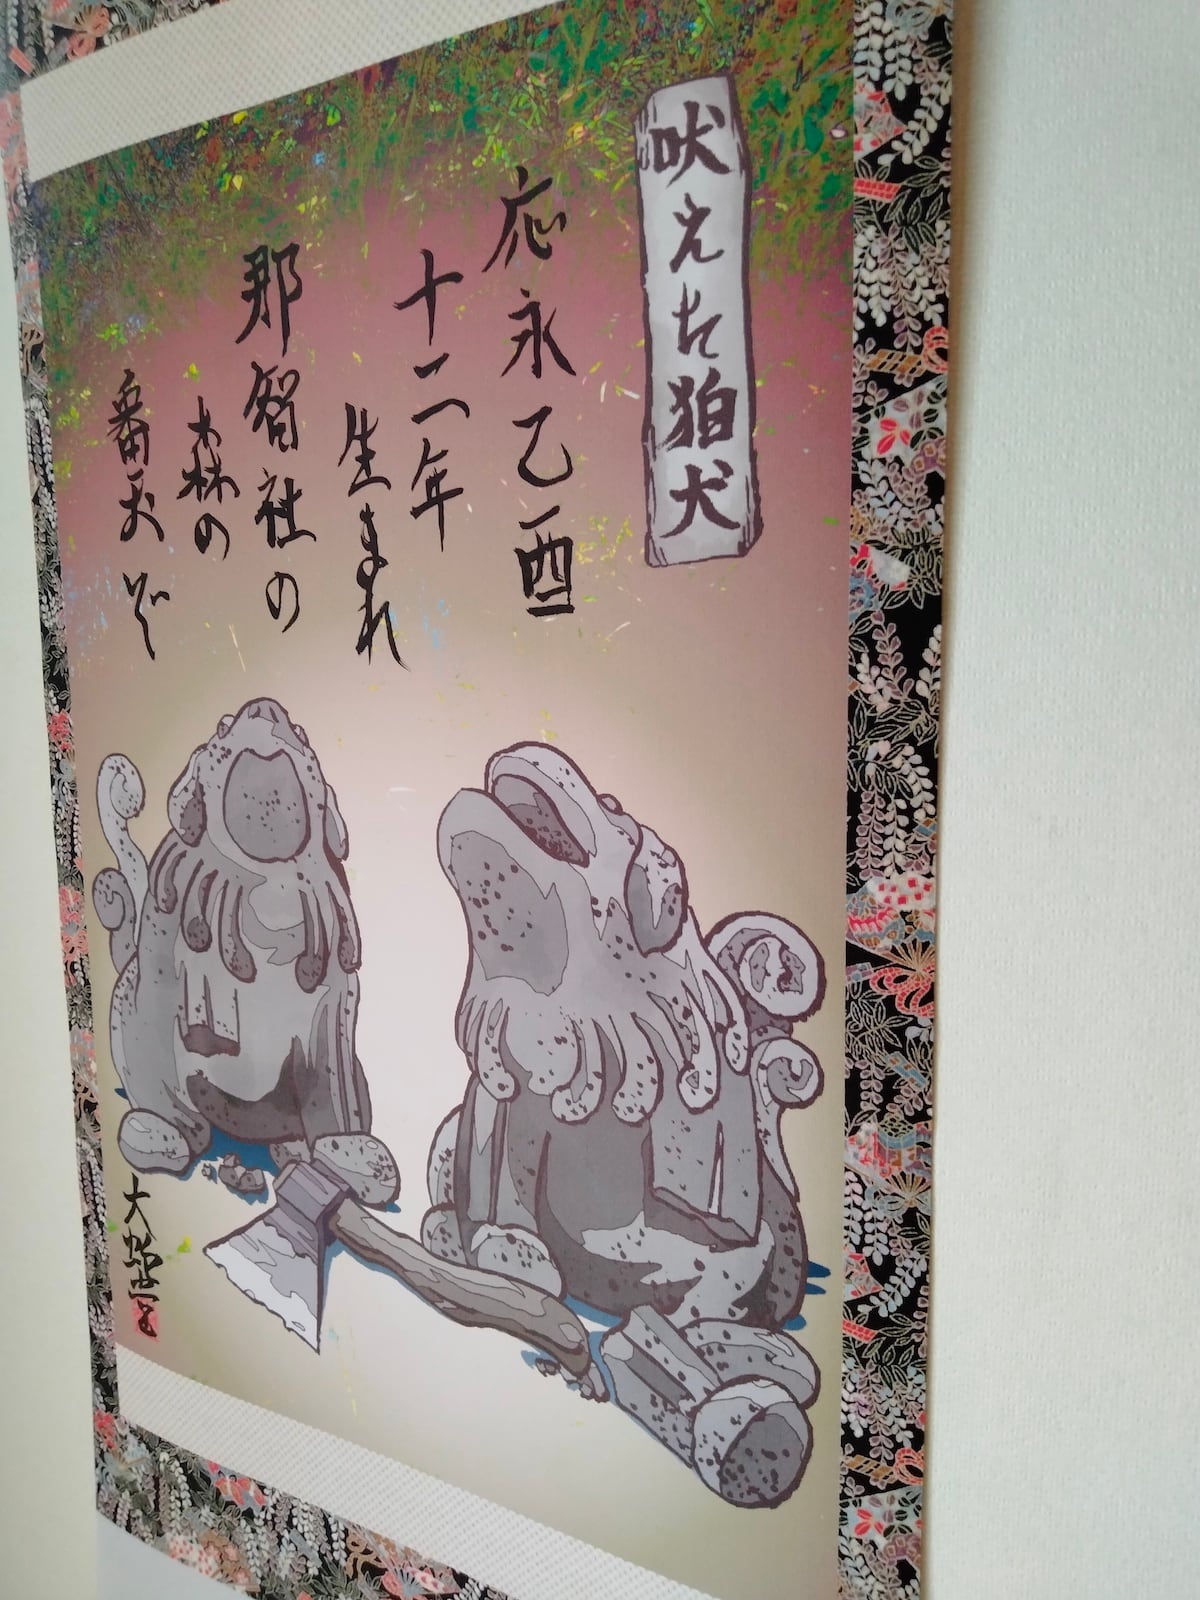 吠えた狛犬
応永乙酉
十二年
生まれ
那智社の
森の
番犬ぞ